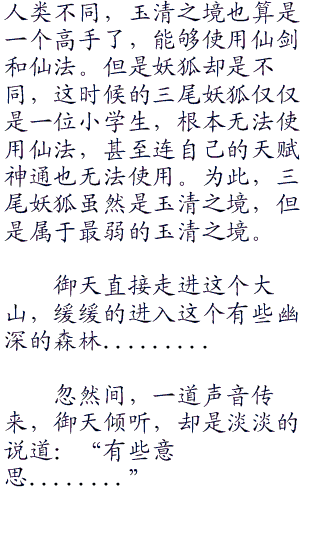 人类不同，玉清之境也算是
一个高手了，能够使用仙剑
和仙法。但是妖狐却是不
同，这时候的三尾妖狐仅仅
是一位小学生，根本无法使
用仙法，甚至连自己的天赋
神通也无法使用。为此，三
尾妖狐虽然是玉清之境，但
是属于最弱的玉清之境。
御天直接走进这个大
山，缓缓的进入这个有些幽
深的森林.........
忽然间，一道声音传
来，御天倾听，却是淡淡的
说道：“有些意
思........”